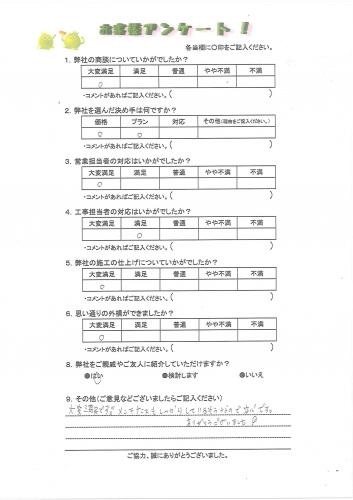 お客様アンケート！
各当欄に〇印をご記入ください。
1. 弊社の商談についていかがでしたか？
大変満足 満足 普通 やや不満 不満
○
・コメントがあればご記入ください。（ ）
2. 弊社を選んだ決め手は何ですか？
価格 プラン 対応 その他（理由をご記入ください。）
○ ○
・コメントがあればご記入ください。（ ）
3. 営業担当者の対応はいかがでしたか？
大変満足 満足 普通 やや不満 不満
○
・コメントがあればご記入ください。（ ）
4. 工事担当者の対応はいかがでしたか？
大変満足 満足 普通 やや不満 不満
○
・コメントがあればご記入ください。（ ）
5. 弊社の施工の仕上げについていかがでしたか？
大変満足 満足 普通 やや不満 不満
○
・コメントがあればご記入ください。（ ）
6. 思い通りの外構ができましたか？
大変満足 満足 普通 やや不満 不満
○
・コメントがあればご記入ください。（ ）
8. 弊社をご親戚やご友人に紹介していただけますか？
●はい ●検討します ●いいえ
9. その他（ご意見などございましたらご記入ください）
大変満足です。メンテナンスもしっかりしている
ありがとうございました
ご協力、誠にありがとうございました。